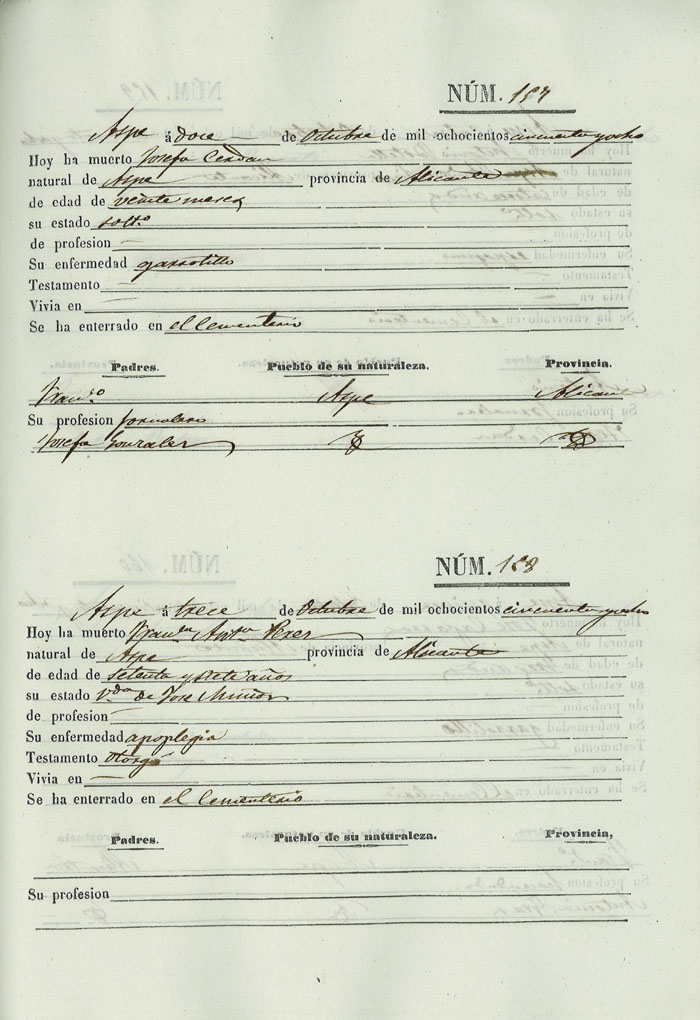 NÚM. 157
Aspe á doce de Octubre de mil ochocientos cincuenta y ocho
Hoy ha muerto Josefa Cerdan
natural de Aspe provincia de Alicante
de edad de veinte meses
su estado solt.ª
de profesion —
Su enfermedad garrotillo
Testamento —
Vivia en —
Se ha enterrado en el Cementerio
Padres. Pueblo de su naturaleza. Provincia.
Fran.co Aspe Alicante
Su profesion jornalero
Josefa Gonzalez
NÚM. 158
Aspe á trece de Octubre de mil ochocientos cincuenta y ocho
Hoy ha muerto Fran.ca Ant.ª Perez
natural de Aspe provincia de Alicante
de edad de setenta y siete años
su estado V.da de Jose Muñoz
de profesion —
Su enfermedad apoplegia
Testamento otorgó
Vivia en —
Se ha enterrado en el Cementerio
Padres. Pueblo de su naturaleza. Provincia,
Su profesion